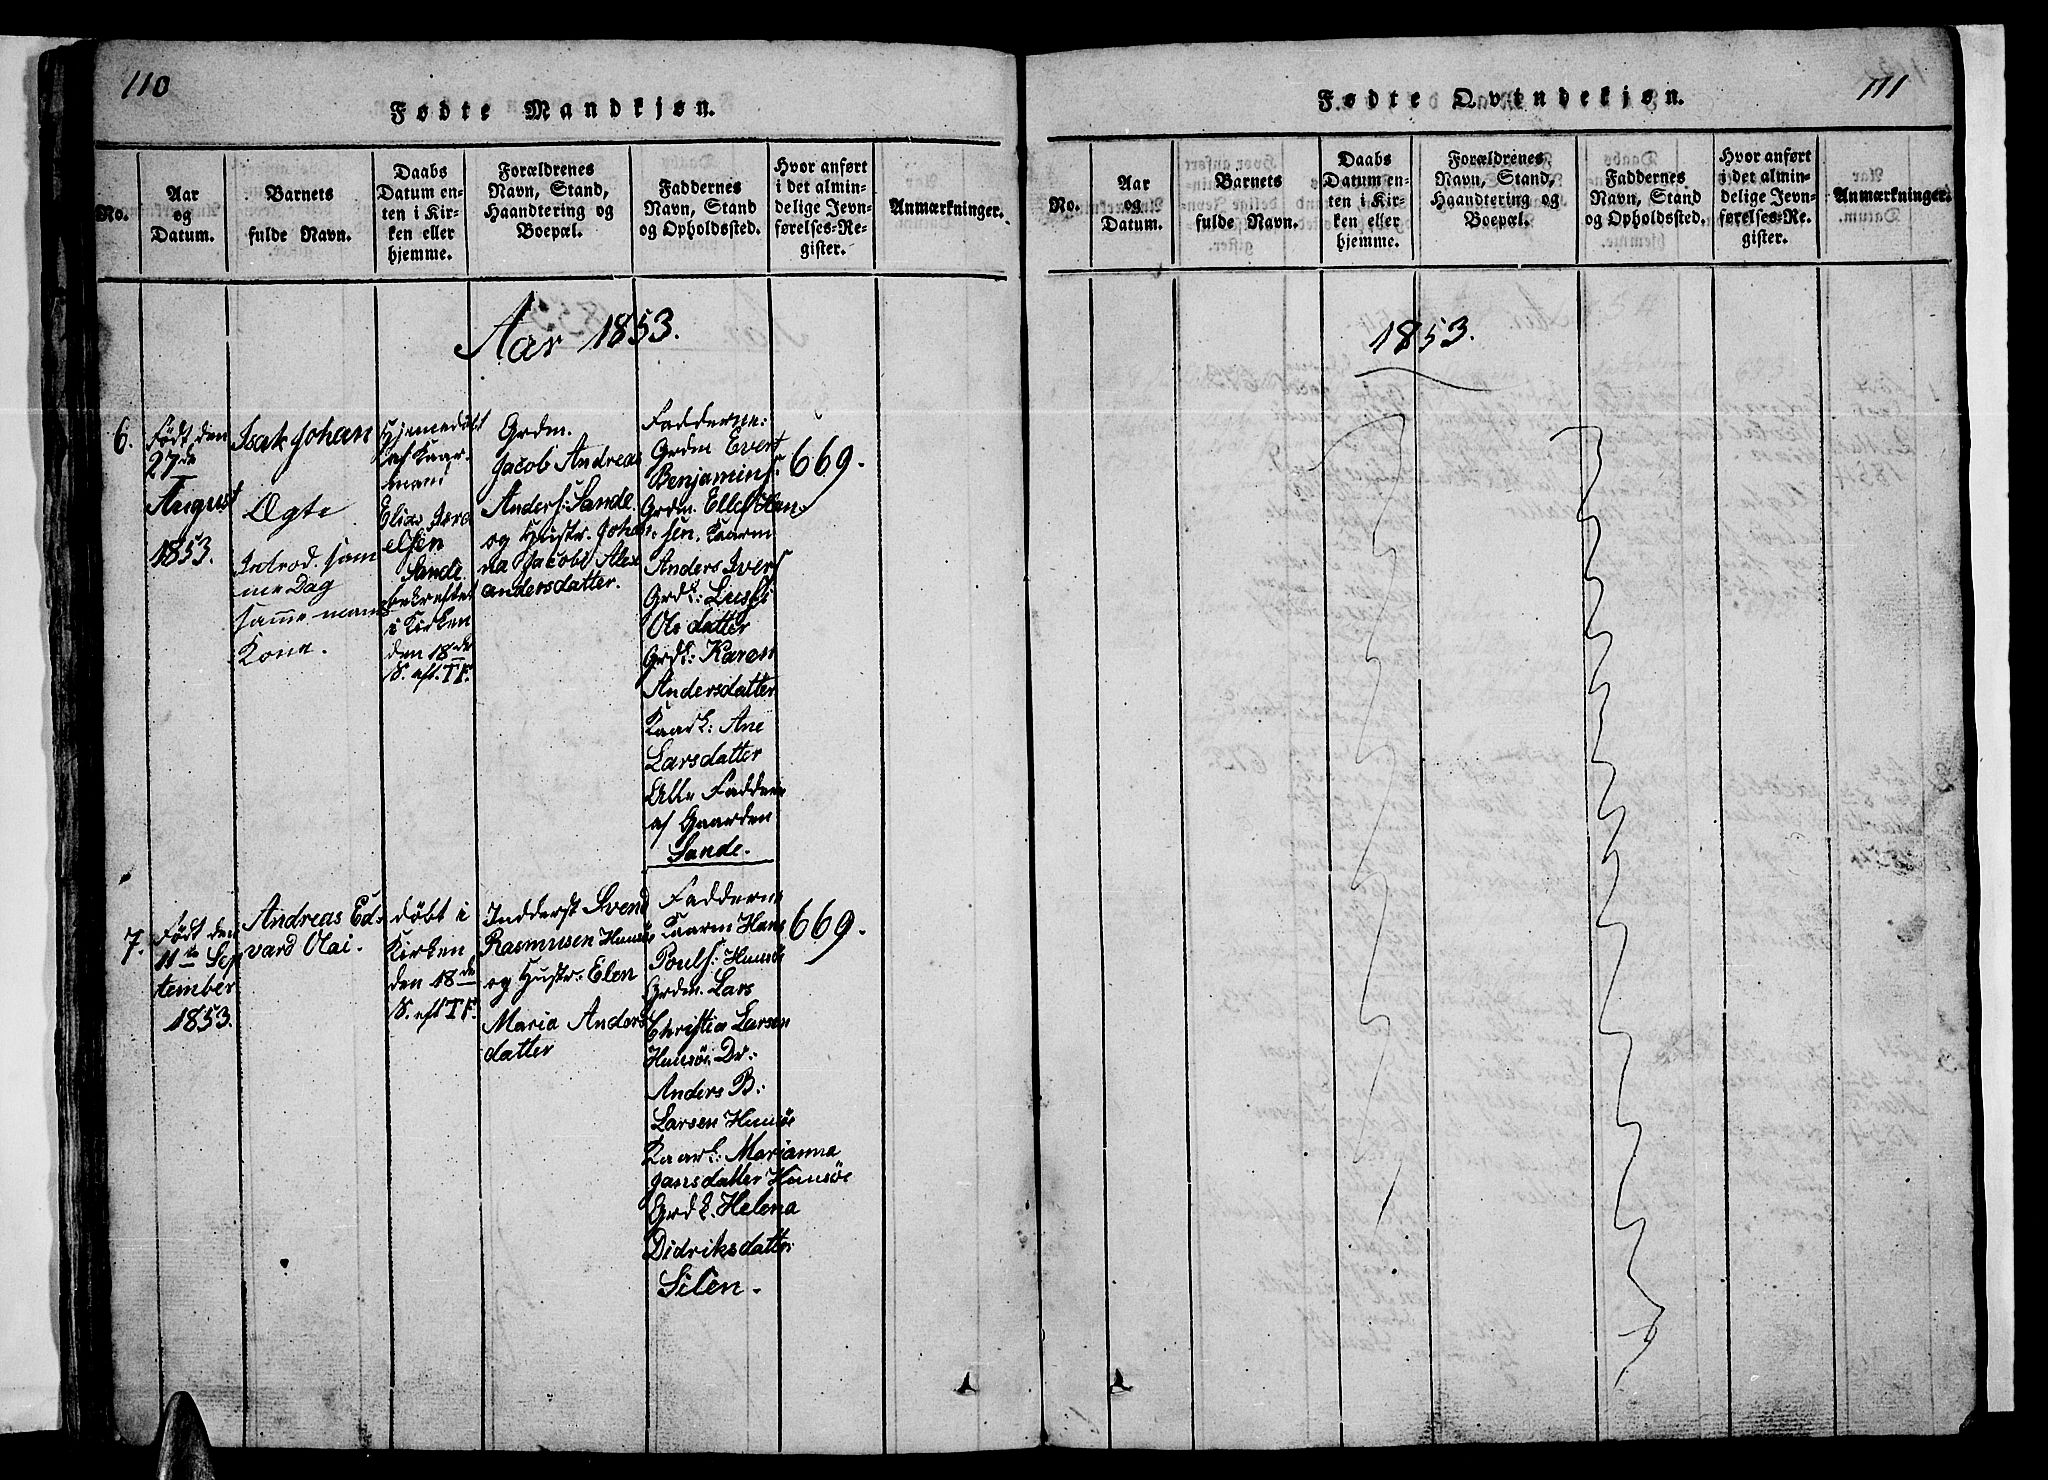 110
Fødte Mandkjøn.
No.
Aar
og
Datum.
Barnets
fulde Navn.
Daabs
Datum en-
ten i Kir-
ken eller
hjemme.
Forældrenes
Navn, Stand,
Haandtering og
Boepæl.
Faddernes
Navn, Stand
og Opholdssted.
Hvor anført
i det almin-
delige Jevn-
førelses-Re-
gister.
Anmærkninger.
Aar 1853.
6.
Født den
27de
August
1853.
Isak Johan
Ægte
Introd. sam
me Dag
samme mans
Kone.
Hjemedøbt
af Kaar-
mand
Elias Isra
elsen
Sande
bekræftet
i Kirken
den 18de
S. eft. TF.
Grdm.
Jacob Andreas
Anders: Sande
og Hustr. Johan-
na Jacobe Alex
andersdatter.
Fadderne:
Grdm Evert
Benjamins:
Grdm. Ellef Han-
sen, Kaarm
Anders Ivers
Grdk:
Ols datter
Grdk: Karen
Andersdatter
Kaark: Ane
Larsdatter
Alle Faddere
af Gaarden
Sande.
669.
7.
Født den
11te Sep
tember
1853.
Andreas Ed-
vard Olai.
døbt i
Kirken
den 18de
S. eft TF.
Indderst Svend
Rasmusen Husøe
og Hustr: Elen
Maria Anders
datter
Fadderne
Kaarm Hans
Pouls: Husøe
Grdm. Lars
Christia Larsen
Husøe Dr:
Anders B:
Larsen Husøe
Kaark: Marianna
Jansdatter Husøe
Grdk. Helena
Didriksdatter
Silen.
669.
111
Fødte Qvindekjøn.
No.
Aar
og
Datum.
Barnets
fulde Navn.
Daabs
Datum en-
ten i Kir-
ken eller
hjemme.
Forældrenes
Navn, Stand,
Haandtering og
Boepæl.
Faddernes
Navn, Stand
og Opholdssted.
Hvor anført
i det almin-
delige Jevn-
førelses-Re-
gister.
Anmærkninger.
1853.